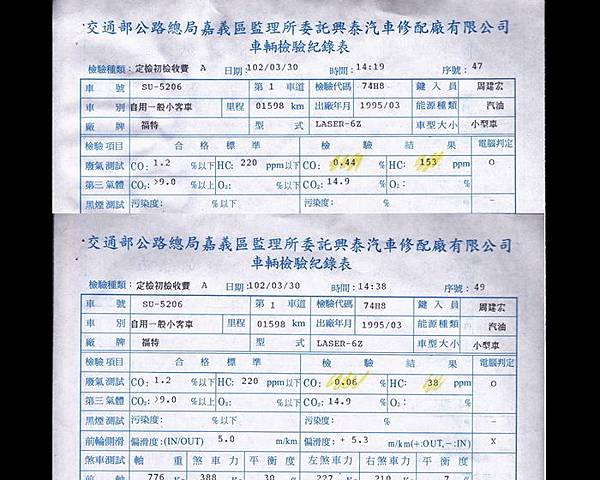 交通部公路總局嘉義區監理所委託興泰汽車修配廠有限公司
車輛檢驗紀錄表
檢驗種類：定檢初檢收費 A 日期：102/03/30 時間：14:19 序號：47
車號 SU-5206 第 1 車道 檢驗代碼 74H8 鍵入員 周建宏
車別 自用一般小客車 里程 01598 km 出廠年月 1995/03 能源種類 汽油
廠牌 福特 型式 LASER-6Z 車型大小 小型車
檢驗項目 合格標準 檢驗結果 電腦判定
廢氣測試 CO: 1.2 %以下 HC: 220 ppm以下 CO: 0.44 % HC: 153 ppm O
第三氣體 CO₂: >9.0 %以上 O₂: %以下 CO₂: 14.9 % O₂: %
黑煙測試 污染度: %以下 污染度: %
交通部公路總局嘉義區監理所委託興泰汽車修配廠有限公司
車輛檢驗紀錄表
檢驗種類：定檢初檢收費 A 日期：102/03/30 時間：14:38 序號：49
車號 SU-5206 第 1 車道 檢驗代碼 74H8 鍵入員 周建宏
車別 自用一般小客車 里程 01598 km 出廠年月 1995/03 能源種類 汽油
廠牌 福特 型式 LASER-6Z 車型大小 小型車
檢驗項目 合格標準 檢驗結果 電腦判定
廢氣測試 CO: 1.2 %以下 HC: 220 ppm以下 CO: 0.06 % HC: 38 ppm O
第三氣體 CO₂: >9.0 %以上 O₂: %以下 CO₂: 14.9 % O₂: %
黑煙測試 污染度: %以下 污染度: %
前輪側滑 偏滑度:(IN/OUT) 5.0 m/km 偏滑度: + 5.3 m/km(+:OUT,-:IN) X
煞車測試 軸重 煞車力 平衡度 左煞車力 右煞車力 平衡度
前軸 776 388 30 227 210 7 %